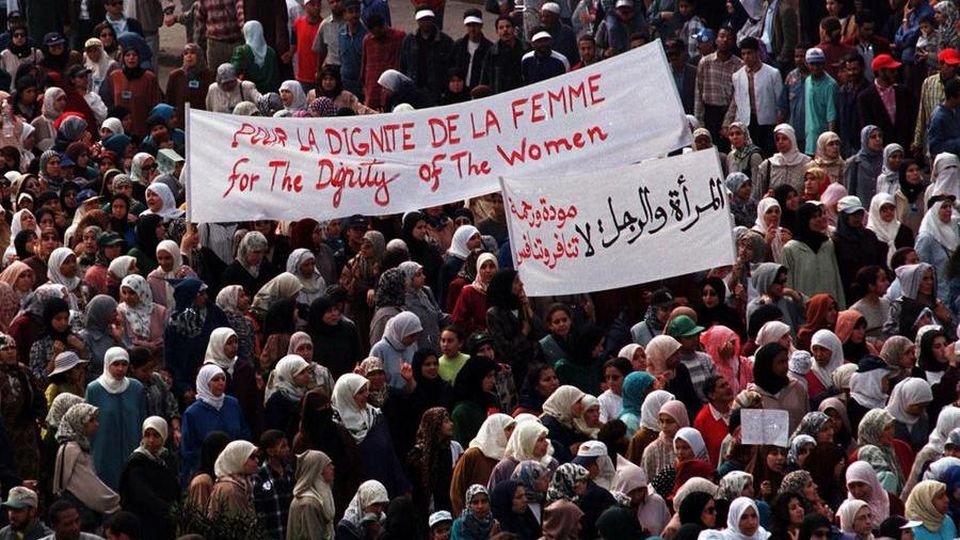 POUR LA DIGNITE DE LA FEMME
for The Dignity of The Women
المرأة والرجل مودة ورحمة
لا تنافر وتنافس